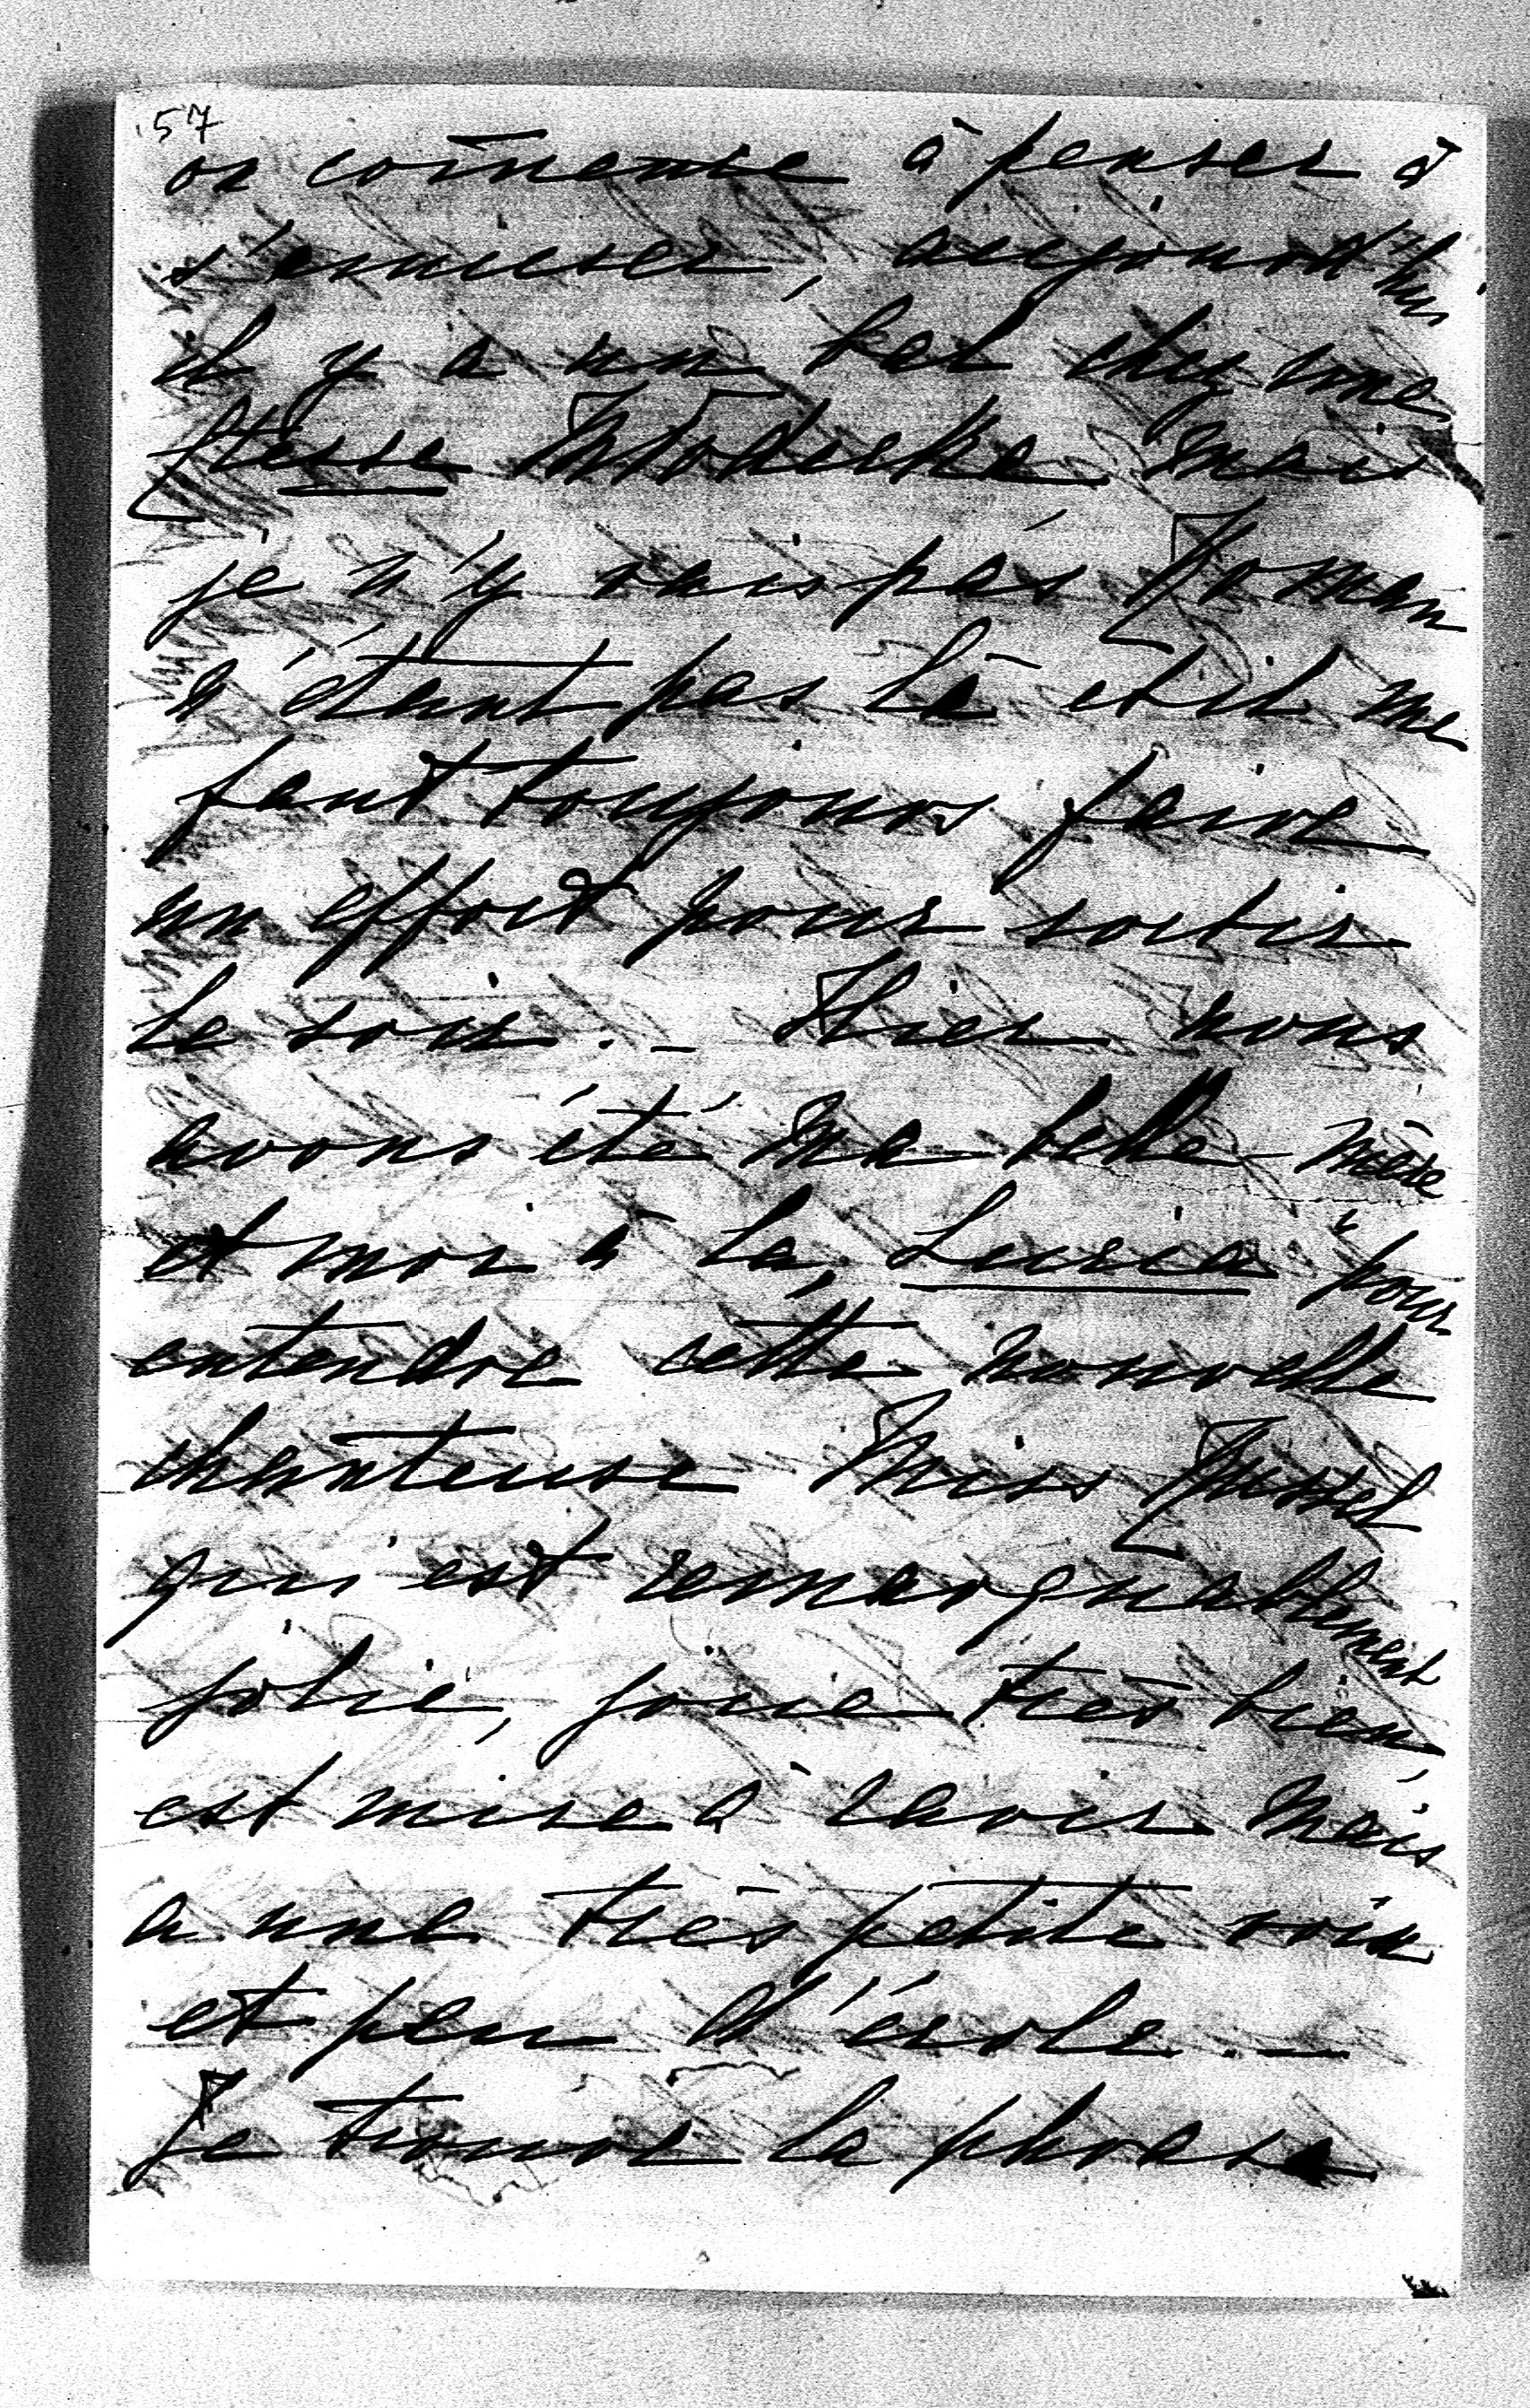 57
on com̄ence à penser à
s'amuser, aujourd'hui
il y a un bal chez une
Ctesse Mtodecka mais
je n'y vais pas Roman
n'étant pas là et il me
faut toujours faire
un effort pour sortir
le soir. — Hier nous
avons été ma belle-mère
et moi à la, Lucia pour
entendre cette nouvelle
chanteuse Miss Russel
qui est remarquablement
jolie, joue très bien,
est mise à ravir mais
a une très petite voix
et peu d'école. —
Je trouve la phrase